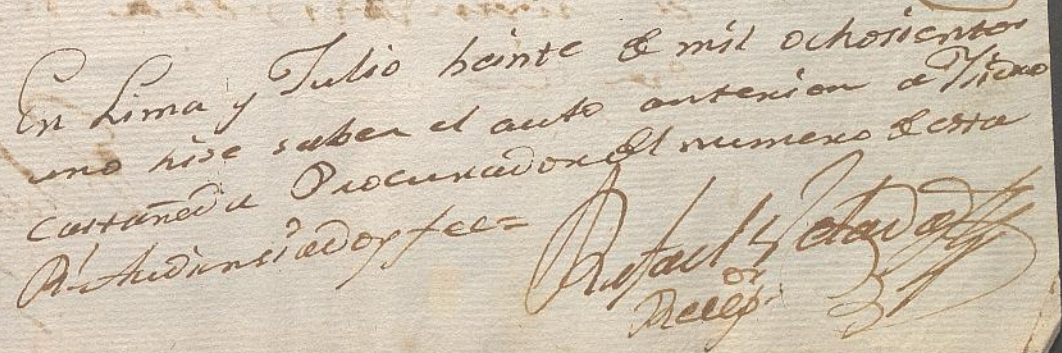 En Lima y Julio beinte de mil ochosientos
uno hise saber el auto anterior a Ysidro
Castañeda Procurador del numero de esta
Rl. Audiencia doy fee=
Rafael
Recepor